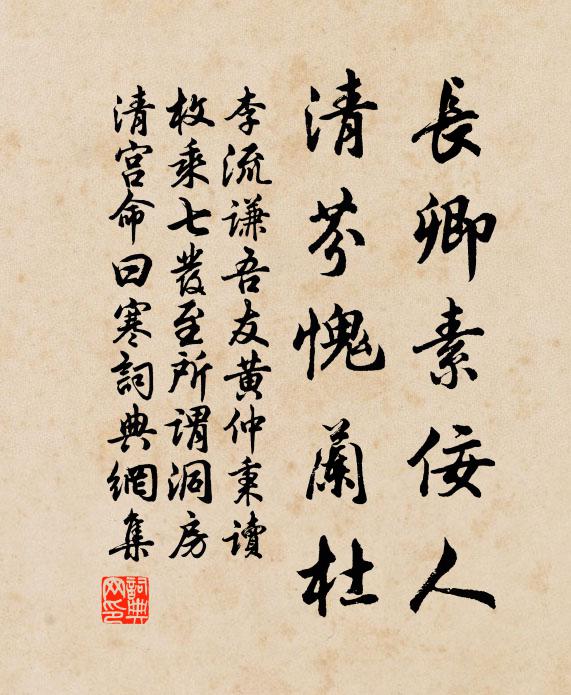 長卿素佞人
清芬愧蘭杜
李流謙吾友黃仲秉讀
枚乘七發至所謂洞房
清宮命曰寒詞典網集
詞典
网印